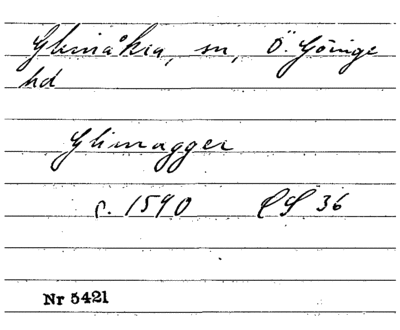 Glimåkra, sn, Ö. Göinge
hd
Glimagger
c. 1590 LS 36
Nr 5421